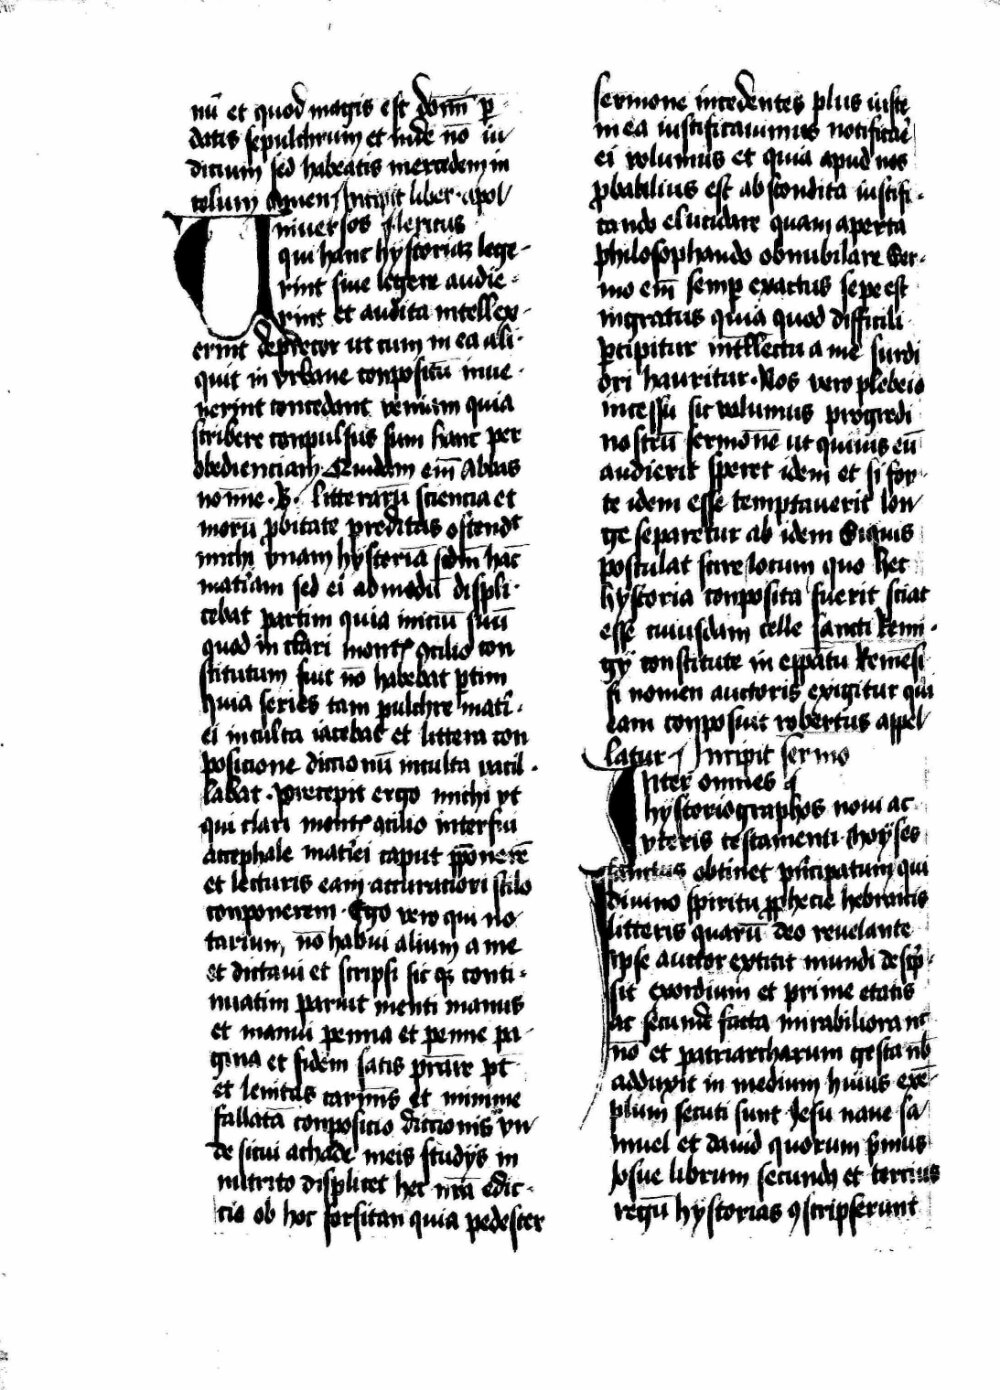 nū et quod magis est domī ꝑ-
datis sepulchrum et inde nō iu-
dicium sed habeatis mercedem in
celum Amen Incipit liber apol
niversos flericus
qui hanc hystoriaꝫ lege-
rint sive legere audie-
rint et audita intellex-
erint deprecor ut cum in ea ali-
quit in urbane conpositū inve-
nerint concedant veniam quia
scribere conpulsus sum hanc per
obedienciam. Quidam em̄ Abbas
noīne .B. litterarū sciencia et
morū ꝓbitate preditus ostendᵗ
michi unam hystoriā scdm hāc
mat̄iam sed ei admodū displi-
cebat partim quia iniciū suū
quod in clari montꝭ ꝯcilio con
stitutum fuit nō habebat ꝑtim
quia series tam pulchre mat̄i-
ei inculta iacebat et littera con
posicione diccionū inculta vacil-
labat. Precepit ergo michi ut
qui clari montꝭ ꝯcilio interfui
Accephale mat̄iei caput ꝓponerē
et lecturis eam accuraciori stilo
conponerem. Ego vero qui no-
tarium, nō habui alium a me
et dictavi et scripsi sic qꝫ conti-
nuatim paruit menti manus
et manui penna et penne pa-
gina et fidem satis p̄tare pt̄
et levitas carmīs et minime
fallatā conposicio diccionis un
de sicui achade meis studijs in
nutrito displicet hec nrā edic-
cio ob hoc forsitan quia pedester
sermone incedentes plus iuste
in ea iustificavimus notificāi
ei volumus et quia apud nos
ꝓbabilius est abscondita iustifi-
cando elucidare quam aperta
philosophando obnubilare Ser-
mo em̄ semꝑ exactus sepe est
ingratus quia quod difficili
ꝑcipitur intellectu a me surdi
ori hauritur. Nos vero plebeio
incessu sic volumus progredi
nostrū sermonē ut quivis cū
audierit speret idem et si for-
te idem esse temptaverit lon-
ge separetur ab idem Siquis
postulat scire locum quo hec
hystoria conposita fuerit sciat
esse cuiusdam celle sancti Remi-
gij constitute in eꝑpātu Remēsi
si nomen auctoris exigitur qui
eam conposuit robertus appel
latur Incipit sermo
Inter omnes q
hystoriographos novi ac
veteris testamenti Moyses
sanctus obtinet pri̅cipatum qui
divino spiritu ꝓphecie hebraicis
litteris quarū deo revelante
ipse auctor extitit mundi descp̄-
sit exordium et prime etatis
ac secunde facta mirabiliora nc
nō et patriarcharum gesta nb̄
adduxit in medium huius exē-
plum secuti sunt Jesu nave sa-
muel et david quorum p̄mus
Josue librum secundꝰ et tercius
regū hystorias ꝯscripserunt